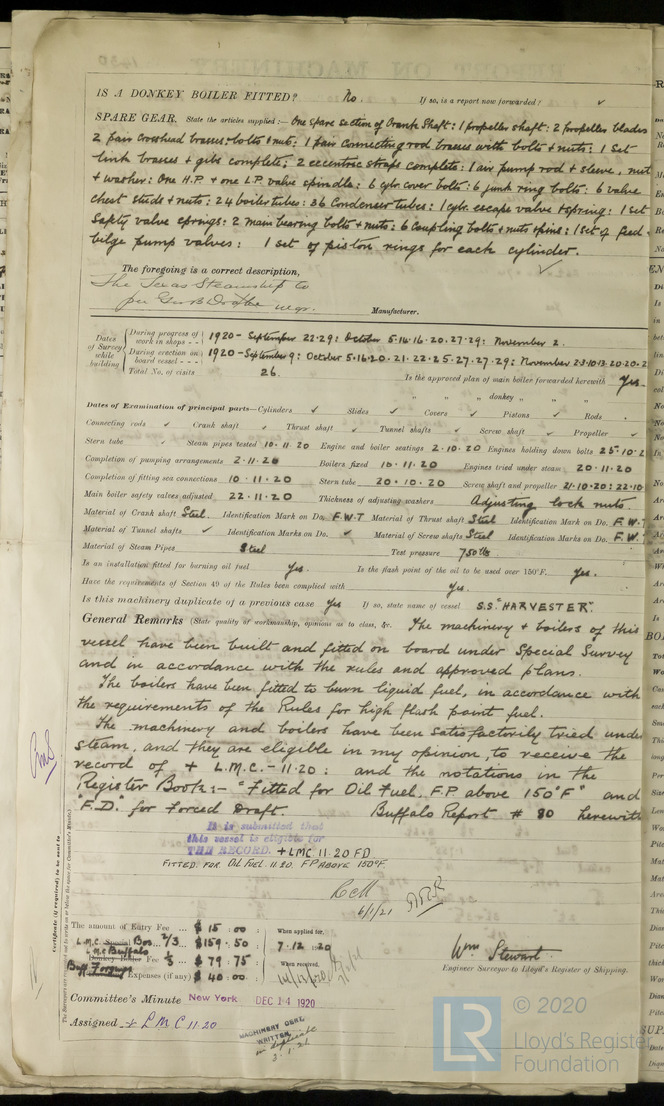 IS A DONKEY BOILER FITTED? No. If so, is a report now forwarded? ✓
SPARE GEAR. State the articles supplied:— One spare section of Crank Shaft: 1 propeller shaft: 2 propeller blades
2 pair crosshead brasses bolts & nuts: 1 pair connecting rod brasses with bolts & nuts: 1 Set
link brasses & gibs complete; 2 eccentric straps complete: 1 air pump rod & sleeve, nut
& washer: One H.P. & one L.P. valve spindle: 6 cylr cover bolts: 6 junk ring bolts: 6 valve
chest studs & nuts: 24 boiler tubes: 36 Condenser tubes: 1 cylr escape valve & spring: 1 set
Safety valve springs: 2 main bearing bolts & nuts: 6 Coupling bolts & nuts & pins: 1 set of feed &
bilge pump valves: 1 set of piston rings for each cylinder.
The foregoing is a correct description,
The Texas Steamship Co
per Geo B mgr. Manufacturer.
Dates of Survey while building
During progress of work in shops - - 1920 - September 22.29: October 5.14.16.20.27.29: November 2.
During erection on board vessel - - - 1920 - September 9: October 5.16.20.21.22.25.27.27.29: November 2.3.10.13.20.20.2
Total No. of visits 26. Is the approved plan of main boiler forwarded herewith Yes.
" " " donkey " " "
Dates of Examination of principal parts—Cylinders ✓ Slides ✓ Covers ✓ Pistons ✓ Rods
Connecting rods ✓ Crank shaft ✓ Thrust shaft ✓ Tunnel shafts ✓ Screw shaft ✓ Propeller ✓
Stern tube ✓ Steam pipes tested 10.11.20 Engine and boiler seatings 2.10.20 Engines holding down bolts 25.10.2
Completion of pumping arrangements 2.11.20 Boilers fixed 10.11.20 Engines tried under steam 20.11.20
Completion of fitting sea connections 10.11.20 Stern tube 20.10.20 Screw shaft and propeller 21.10.20: 22.10
Main boiler safety valves adjusted 22.11.20 Thickness of adjusting washers Adjusting lock nuts.
Material of Crank shaft Steel. Identification Mark on Do. F.W.T Material of Thrust shaft Steel Identification Mark on Do. F.W.T
Material of Tunnel shafts ✓ Identification Marks on Do. ✓ Material of Screw shafts Steel Identification Marks on Do. F.W.
Material of Steam Pipes Steel Test pressure 750 lb
Is an installation fitted for burning oil fuel Yes. Is the flash point of the oil to be used over 150°F. Yes.
Have the requirements of Section 49 of the Rules been complied with Yes.
Is this machinery duplicate of a previous case Yes If so, state name of vessel S.S. "HARVESTER".
General Remarks (State quality of workmanship, opinions as to class, &c. The machinery & boilers of this
vessel have been built and fitted on board under Special Survey
and in accordance with the rules and approved plans.
The boilers have been fitted to burn liquid fuel, in accordance with
the requirements of the Rules for high flash point fuel.
The machinery and boilers have been satisfactorily tried under
steam, and they are eligible in my opinion, to receive the
record of + L.M.C. - 11.20: and the notations in the
Register Book:— "Fitted for Oil Fuel. F.P. above 150°F" and
"F.D." for Forced Draft. Buffalo Report # 80 herewith
It is submitted that
this vessel is eligible for
THE RECORD. + LMC 11.20 FD
FITTED FOR OIL FUEL 11.20. F.P ABOVE 150°F.
6/1/21
The amount of Entry Fee ... $ 15 : 00 : When applied for,
L.M.C. Special Bos... 2/3 $159 : 50 7.12.1920
L.M.C. Buffalo Donkey Boiler Fee 1/3 $ 79 : 75 When received,
Expenses (if any) $ 40 : 00
Wm Stewart.
Engineer Surveyor to Lloyd's Register of Shipping.
Committee's Minute New York DEC 14 1920
Assigned + L M C 11.20
MACHINERY CERT. WRITTEN
in duplicate
3.1.21
Certificate (if required) to be sent to
LR
© 2020
Lloyd's Register
Foundation